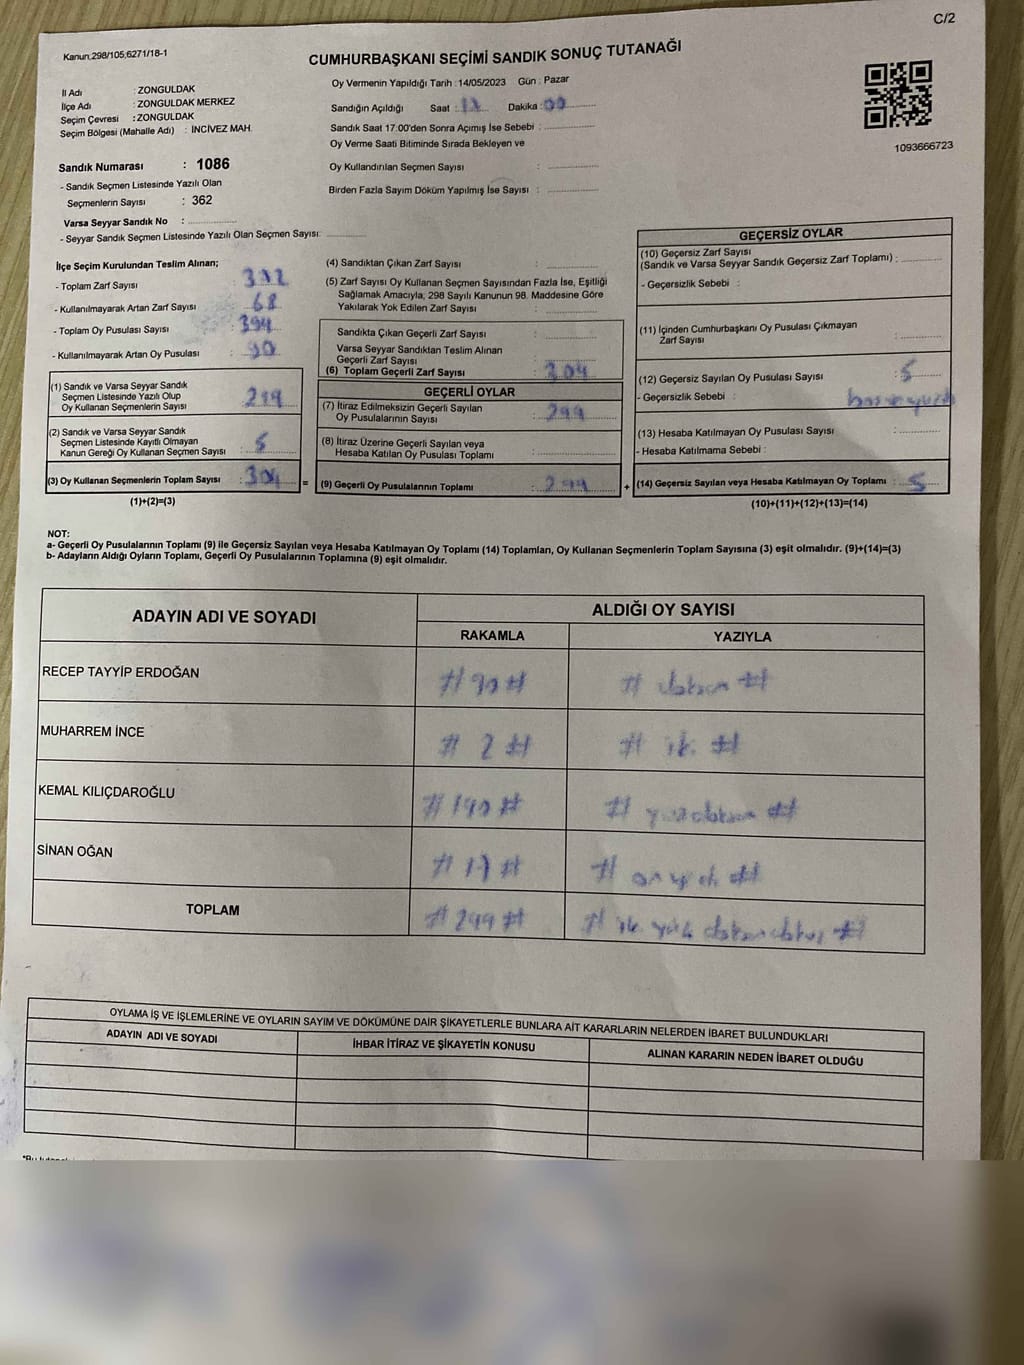 C/2
Kanun:298/105;6271/18-1
CUMHURBAŞKANI SEÇİMİ SANDIK SONUÇ TUTANAĞI
İl Adı : ZONGULDAK
İlçe Adı : ZONGULDAK MERKEZ
Seçim Çevresi : ZONGULDAK
Seçim Bölgesi (Mahalle Adı) : İNCİVEZ MAH.
Sandık Numarası : 1086
- Sandık Seçmen Listesinde Yazılı Olan
Seçmenlerin Sayısı : 362
Varsa Seyyar Sandık No :
- Seyyar Sandık Seçmen Listesinde Yazılı Olan Seçmen Sayısı:
Oy Vermenin Yapıldığı Tarih : 14/05/2023 Gün : Pazar
Sandığın Açıldığı Saat : Dakika : 00
Sandık Saat 17:00'den Sonra Açımış İse Sebebi :
Oy Verme Saati Bitiminde Sırada Bekleyen ve
Oy Kullandırılan Seçmen Sayısı :
Birden Fazla Sayım Döküm Yapılmış İse Sayısı :
1093666723
İlçe Seçim Kurulundan Teslim Alınan;
- Toplam Zarf Sayısı :
- Kullanılmayarak Artan Zarf Sayısı : 68
- Toplam Oy Pusulası Sayısı : 394
- Kullanılmayarak Artan Oy Pusulası : 90
(1) Sandık ve Varsa Seyyar Sandık
Seçmen Listesinde Yazılı Olup
Oy Kullanan Seçmenlerin Sayısı : 299
(2) Sandık ve Varsa Seyyar Sandık
Seçmen Listesinde Kayıtlı Olmayan
Kanun Gereği Oy Kullanan Seçmen Sayısı : 5
(3) Oy Kullanan Seçmenlerin Toplam Sayısı : 304 =
(1)+(2)=(3)
(4) Sandıktan Çıkan Zarf Sayısı :
(5) Zarf Sayısı Oy Kullanan Seçmen Sayısından Fazla İse, Eşitliği
Sağlamak Amacıyla, 298 Sayılı Kanunun 98. Maddesine Göre
Yakılarak Yok Edilen Zarf Sayısı :
Sandıkta Çıkan Geçerli Zarf Sayısı :
Varsa Seyyar Sandıktan Teslim Alınan
Geçerli Zarf Sayısı :
(6) Toplam Geçerli Zarf Sayısı : 304
GEÇERLİ OYLAR
(7) İtiraz Edilmeksizin Geçerli Sayılan
Oy Pusulalarının Sayısı : 299
(8) İtiraz Üzerine Geçerli Sayılan veya
Hesaba Katılan Oy Pusulası Toplamı :
(9) Geçerli Oy Pusulalarının Toplamı : 299 +
GEÇERSİZ OYLAR
(10) Geçersiz Zarf Sayısı
(Sandık ve Varsa Seyyar Sandık Geçersiz Zarf Toplamı) :
- Geçersizlik Sebebi :
(11) İçinden Cumhurbaşkanı Oy Pusulası Çıkmayan
Zarf Sayısı :
(12) Geçersiz Sayılan Oy Pusulası Sayısı : 5
- Geçersizlik Sebebi :
(13) Hesaba Katılmayan Oy Pusulası Sayısı :
- Hesaba Katılmama Sebebi :
(14) Geçersiz Sayılan veya Hesaba Katılmayan Oy Toplamı : 5
(10)+(11)+(12)+(13)=(14)
NOT:
a- Geçerli Oy Pusulalarının Toplamı (9) ile Geçersiz Sayılan veya Hesaba Katılmayan Oy Toplamı (14) Toplamları, Oy Kullanan Seçmenlerin Toplam Sayısına (3) eşit olmalıdır. (9)+(14)=(3)
b- Adayların Aldığı Oyların Toplamı, Geçerli Oy Pusulalarının Toplamına (9) eşit olmalıdır.
ADAYIN ADI VE SOYADI ALDIĞI OY SAYISI
RAKAMLA YAZIYLA
RECEP TAYYİP ERDOĞAN # 90 # # doksan #
MUHARREM İNCE # 2 # # iki #
KEMAL KILIÇDAROĞLU # 190 # # yüzdoksan #
SİNAN OĞAN # 17 # # on yedi #
TOPLAM # 299 # # iki yüz doksandokuz #
OYLAMA İŞ VE İŞLEMLERİNE VE OYLARIN SAYIM VE DÖKÜMÜNE DAİR ŞİKAYETLERLE BUNLARA AİT KARARLARIN NELERDEN İBARET BULUNDUKLARI
ADAYIN ADI VE SOYADI İHBAR İTİRAZ VE ŞİKAYETİN KONUSU ALINAN KARARIN NEDEN İBARET OLDUĞU